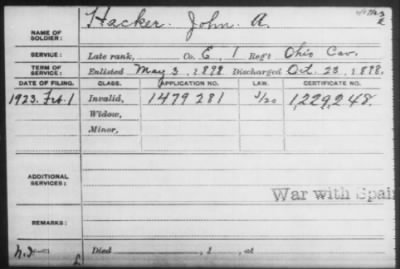 Hacker. John A.
NAME OF SOLDIER:
SERVICE: Late rank, Co. E, 1 Reg't Ohio Cav.
TERM OF SERVICE: Enlisted May 3, 1898 Discharged Oct. 23, 1898.
DATE OF FILING. CLASS. APPLICATION NO. LAW. CERTIFICATE NO.
1923. Feb. 1 Invalid, 1479281 1,229,248.
Widow,
Minor,
ADDITIONAL SERVICES:
War with Spain
REMARKS:
Died , 1 , at